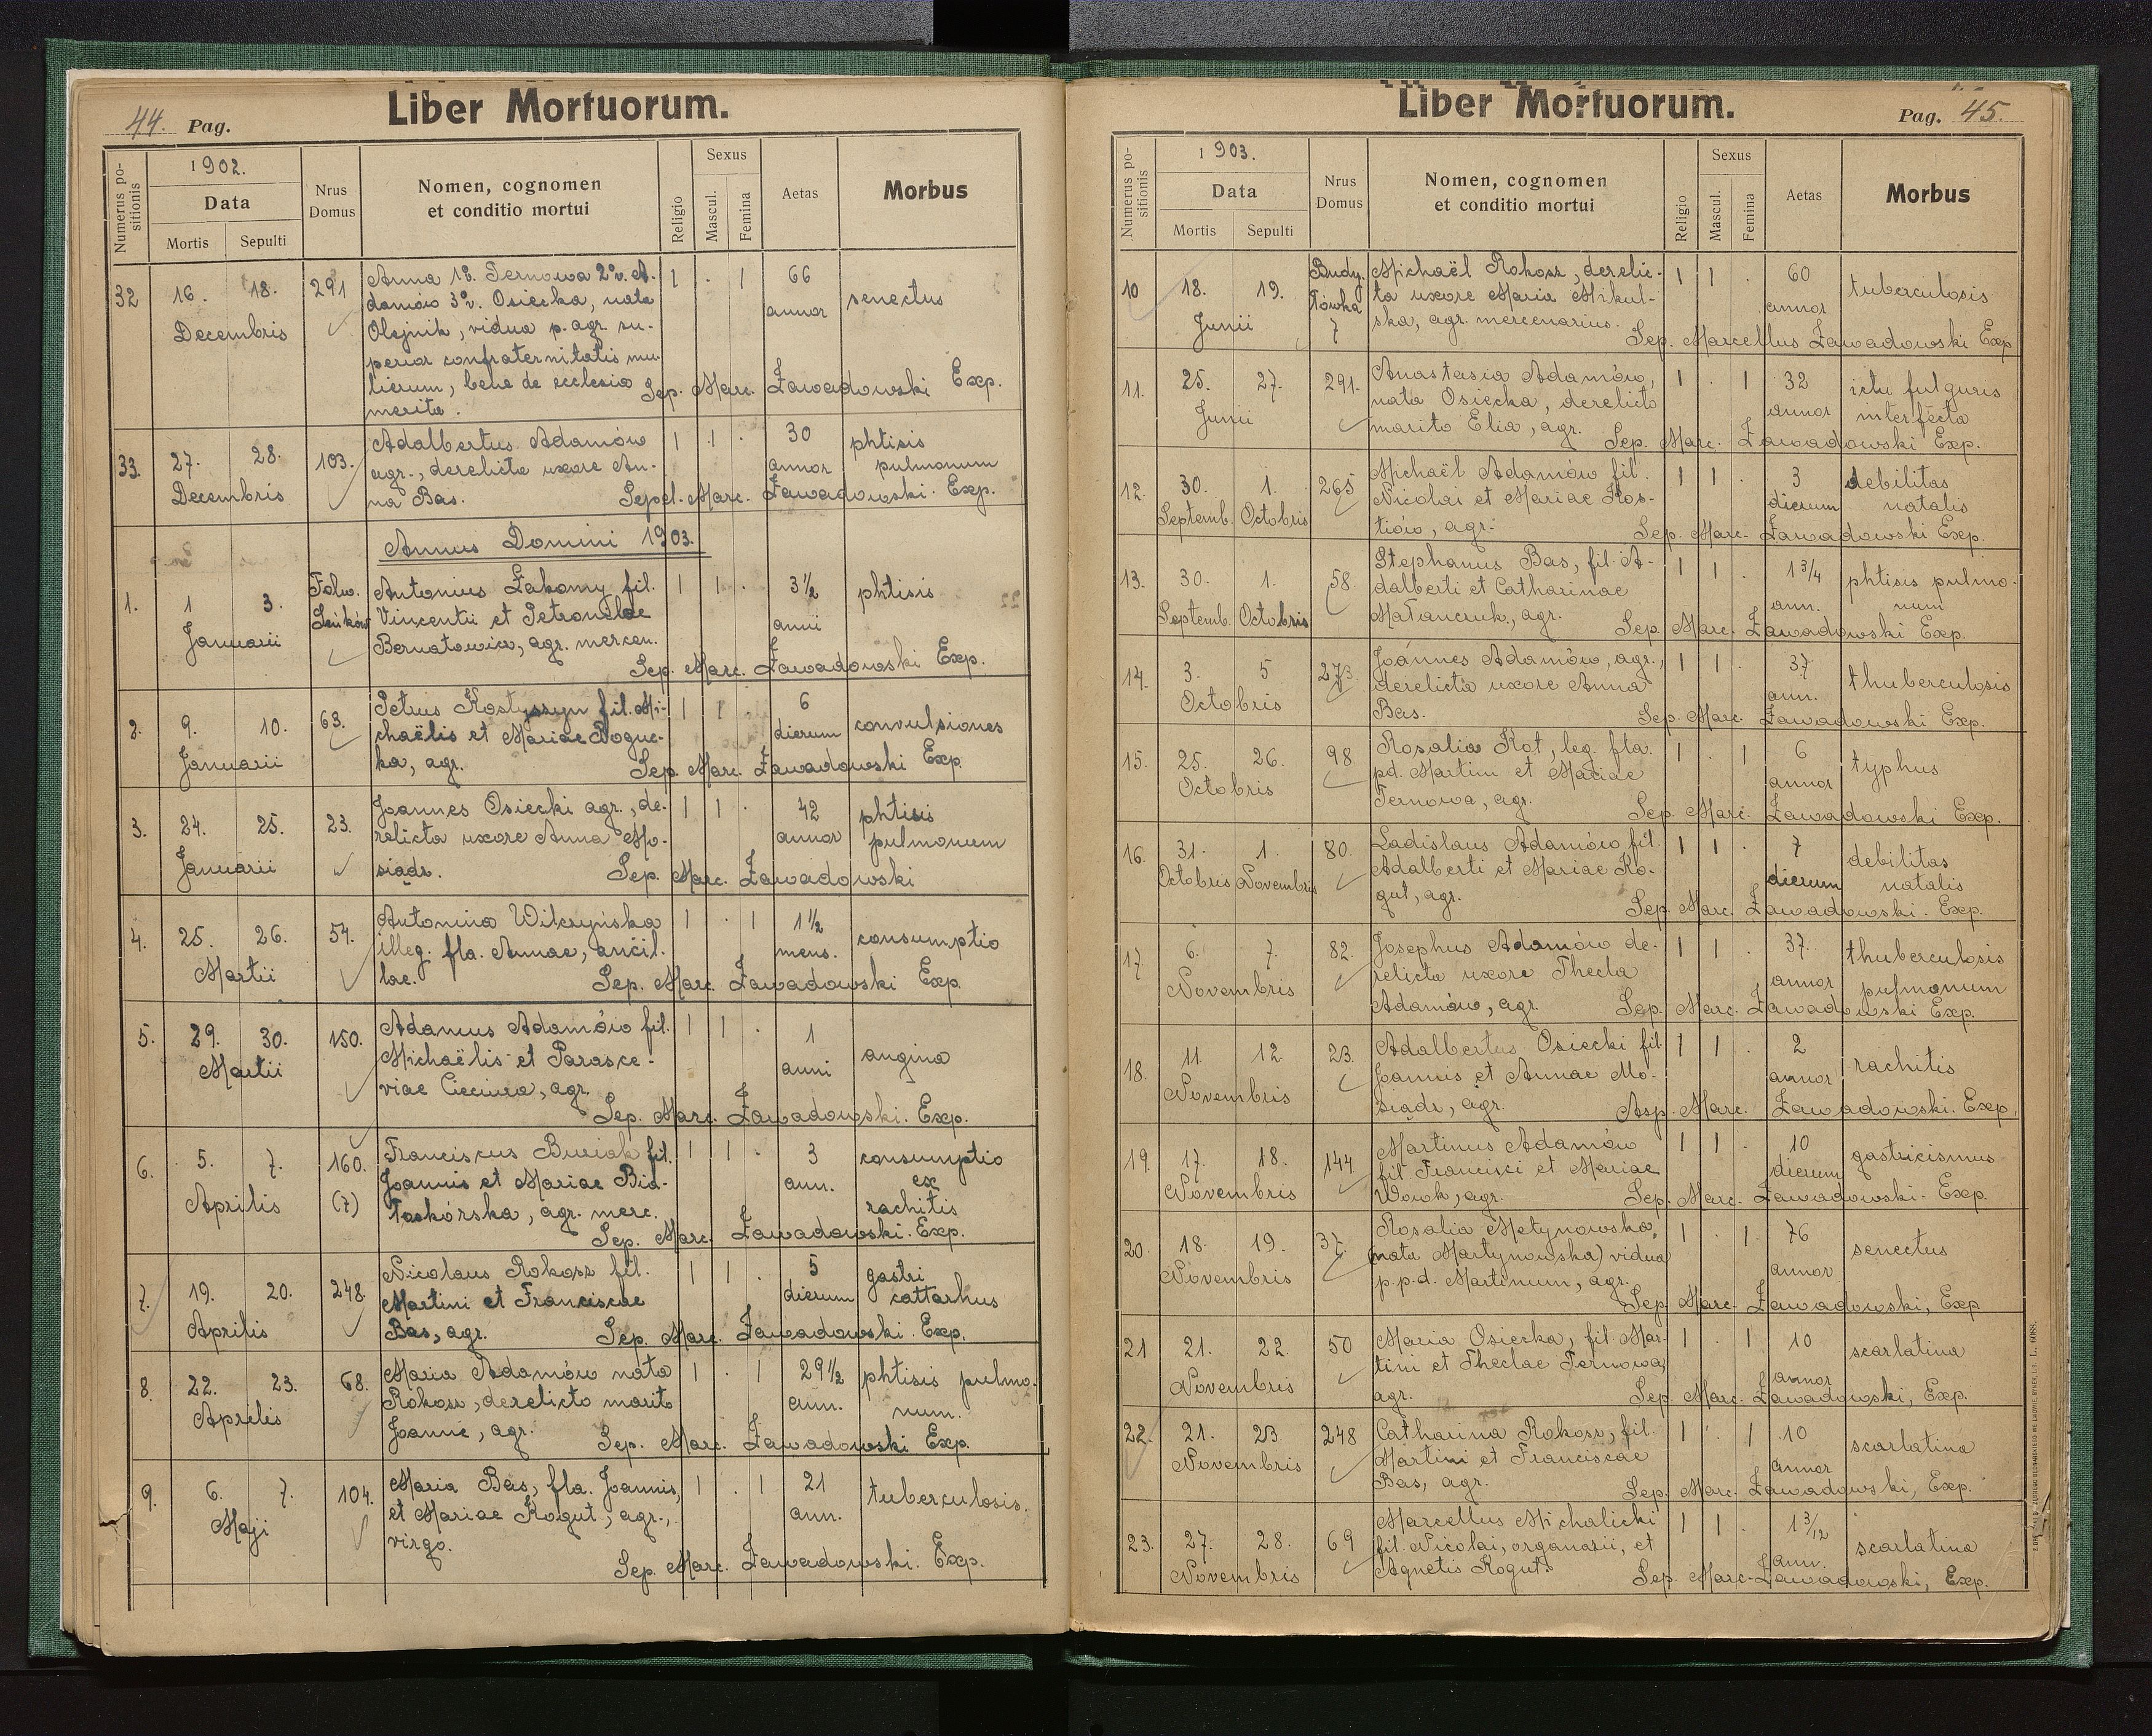 44. Pag.
Liber Mortuorum.
Numerus positionis
1902.
Data
Mortis
Sepulti
Nrus Domus
Nomen, cognomen et conditio mortui
Religio
Sexus
Mascul.
Femina
Aetas
Morbus
32 16. 18. 291 Anna 1v. Ternowa 2v. A- 1 . 1 66 senectus
damów 3v. Osiecka, nata annor
Decembris Olejnik, vidua p. agr. su-
perior confraternitatis mu-
lierum, bene de ecclesia Sep. Marc. Zawadowski Exp.
merita.
33. 27. 28. 103. Adalbertus Adamów 1 1 . 30 phtisis
agr., derelicta uxore An- annor pulmonum
Decembris na Bas. Sepel. Marc. Zawadowski. Exp.
Annus Domini 1903.
1. 1 3. Folw. Antonius Łakomy fil. 1 1 . 3½ phtisis
Vincentii et Petronelae annii
Januarii Bernatowicz, agr. mercen.
Sep. Marc. Zawadowski Exp.
2. 9. 10. 63. Petrus Kostyszyn fil. Mi- 1 1 . 6 convulsiones
chaëlis et Mariae dierum
Januarii ka, agr. Sep. Marc. Zawadowski Exp
3. 24. 25. 23. Joannes Osiecki agr., de- 1 1 . 42 phtisis
relicta uxore Anna Mo- annor pulmonum
Januarii siądz. Sep. Marc. Zawadowski
4. 25. 26. 54. Antonina Wilczyńska 1 . 1 1½ consumptio
illeg. fla. Annae, ancil- mens.
Martii lae. Sep. Marc. Zawadowski Exp.
5. 29. 30. 150. Adamus Adamów fil. 1 1 . 1 angina
Michaëlis et Parasce- anni
Martii viae Cieciura, agr.
Sep. Marc. Zawadowski. Exp.
6. 5. 7. 160. Franciscus Buriak fil. 1 1 . 3 consumptio
Joannis et Mariae Bia- ann. ex
Aprilis (7) łoskórska, agr. merc. rachitis
Sep. Marc. Zawadowski. Exp.
7. 19. 20. 248. Nicolaus Rokosz fil. 1 1 . 5 gastri
Martini et Franciscae dierum cattarhus
Aprilis Bas, agr. Sep. Marc. Zawadowski. Exp.
8. 22. 23. 68. Maria Adamów nata 1 . 1 29½ phtisis pulmo-
Rokosz, derelicto marito ann. num.
Aprilis Joanne, agr. Sep. Marc. Zawadowski Exp.
9. 6. 7. 104. Maria Bas, fla. Joannis, 1 . 1 21 tuberculosis.
et Mariae Kogut, agr., ann.
Maji virgo.
Sep. Marc. Zawadowski. Exp.
Liber Mortuorum.
Pag. 45.
Numerus positionis
1903.
Data
Mortis
Sepulti
Nrus Domus
Nomen, cognomen et conditio mortui
Religio
Sexus
Mascul.
Femina
Aetas
Morbus
10 18. 19. Budy- Michaël Rokosz, derelic- 1 1 . 60 tuberculosis
łówka ta uxore Maria Mikul- annor
Junii 7 ska, agr. mercenarius.
Sep. Marcellus Zawadowski Exp
11. 25. 27. 291. Anastasia Adamów, 1 . 1 32 ictu fulguris
nata Osiecka, derelicto annor interfecta
Junii marito Elia, agr. Sep. Marc. Zawadowski Exp.
12. 30. 1. 265 Michaël Adamów fil. 1 1 . 3 debilitas
Nicolai et Mariae Kos- dierum natalis
Septemb. Octobris tiów, agr. Sep. Marc. Zawadowski Exp.
13. 30. 1. 58. Stephanus Bas, fil. A- 1 1 . 1¾ phtisis pulmo-
dalberti et Catharinae ann. num
Septemb. Octobris Matanczuk, agr. Sep. Marc. Zawadowski Exp.
14. 3. 5 273. Joannes Adamów, agr., 1 1 . 37 thuberculosis
derelicta uxore Anna ann.
Octobris Bas. Sep. Marc. Zawadowski Exp.
15. 25. 26. 98 Rosalia Kot, leg. fla. 1 . 1 6 typhus
pd. Martini et Mariae annor
Octobris Ternowa, agr. Sep. Marc. Zawadowski Exp.
16. 31. 1. 80. Ladislaus Adamów fil. 1 1 . 7 debilitas
Adalberti et Mariae Ko- dierum natalis
Octobris Novembris gut, agr. Sep. Marc. Zawadowski. Exp.
17. 6. 7. 82. Josephus Adamów de- 1 1 . 37. thuberculosis
relicta uxore Thecla annor pulmonum
Novembris Adamów, agr. Sep. Marc. Zawadowski Exp.
18. 11. 12. 23. Adalbertus Osiecki fil. 1 1 . 2 rachitis
Joannis et Annae Mo- annor
Novembris siądz, agr. Asp. Marc. Zawadowski. Exp.
19. 17. 18. 144 Martinus Adamów 1 1 . 10 gastricismus
fil. Francisci et Mariae dierum
Novembris Wowk, agr. Sep. Marc. Zawadowski. Exp.
20. 18. 19. 37. Rosalia Metynowska, 1 . 1 76 senectus
(nata Martynowska) vidua annor
Novembris p.p.d. Martinum, agr.
Sep. Marc. Zawadowski, Exp
21 21. 22. 50 Maria Osiecka, fil. Mar- 1 . 1 10 scarlatina
tini et Theclae Ternowa, annor
Novembris agr. Sep. Marc. Zawadowski, Exp.
22. 21. 23. 248 Catharina Rokosz, fil. 1 . 1 10 scarlatina
Martini et Franciscae annor
Novembris Bas, agr. Sep. Marc. Zawadowski, Exp.
23. 27. 28. 69 Marcellus Michalicki 1 1 . 1 3/12 scarlatina
fil. Nicolai, organarii, et ann.
Novembris Agnetis Kogut. Sep. Marc. Zawadowski, Exp.